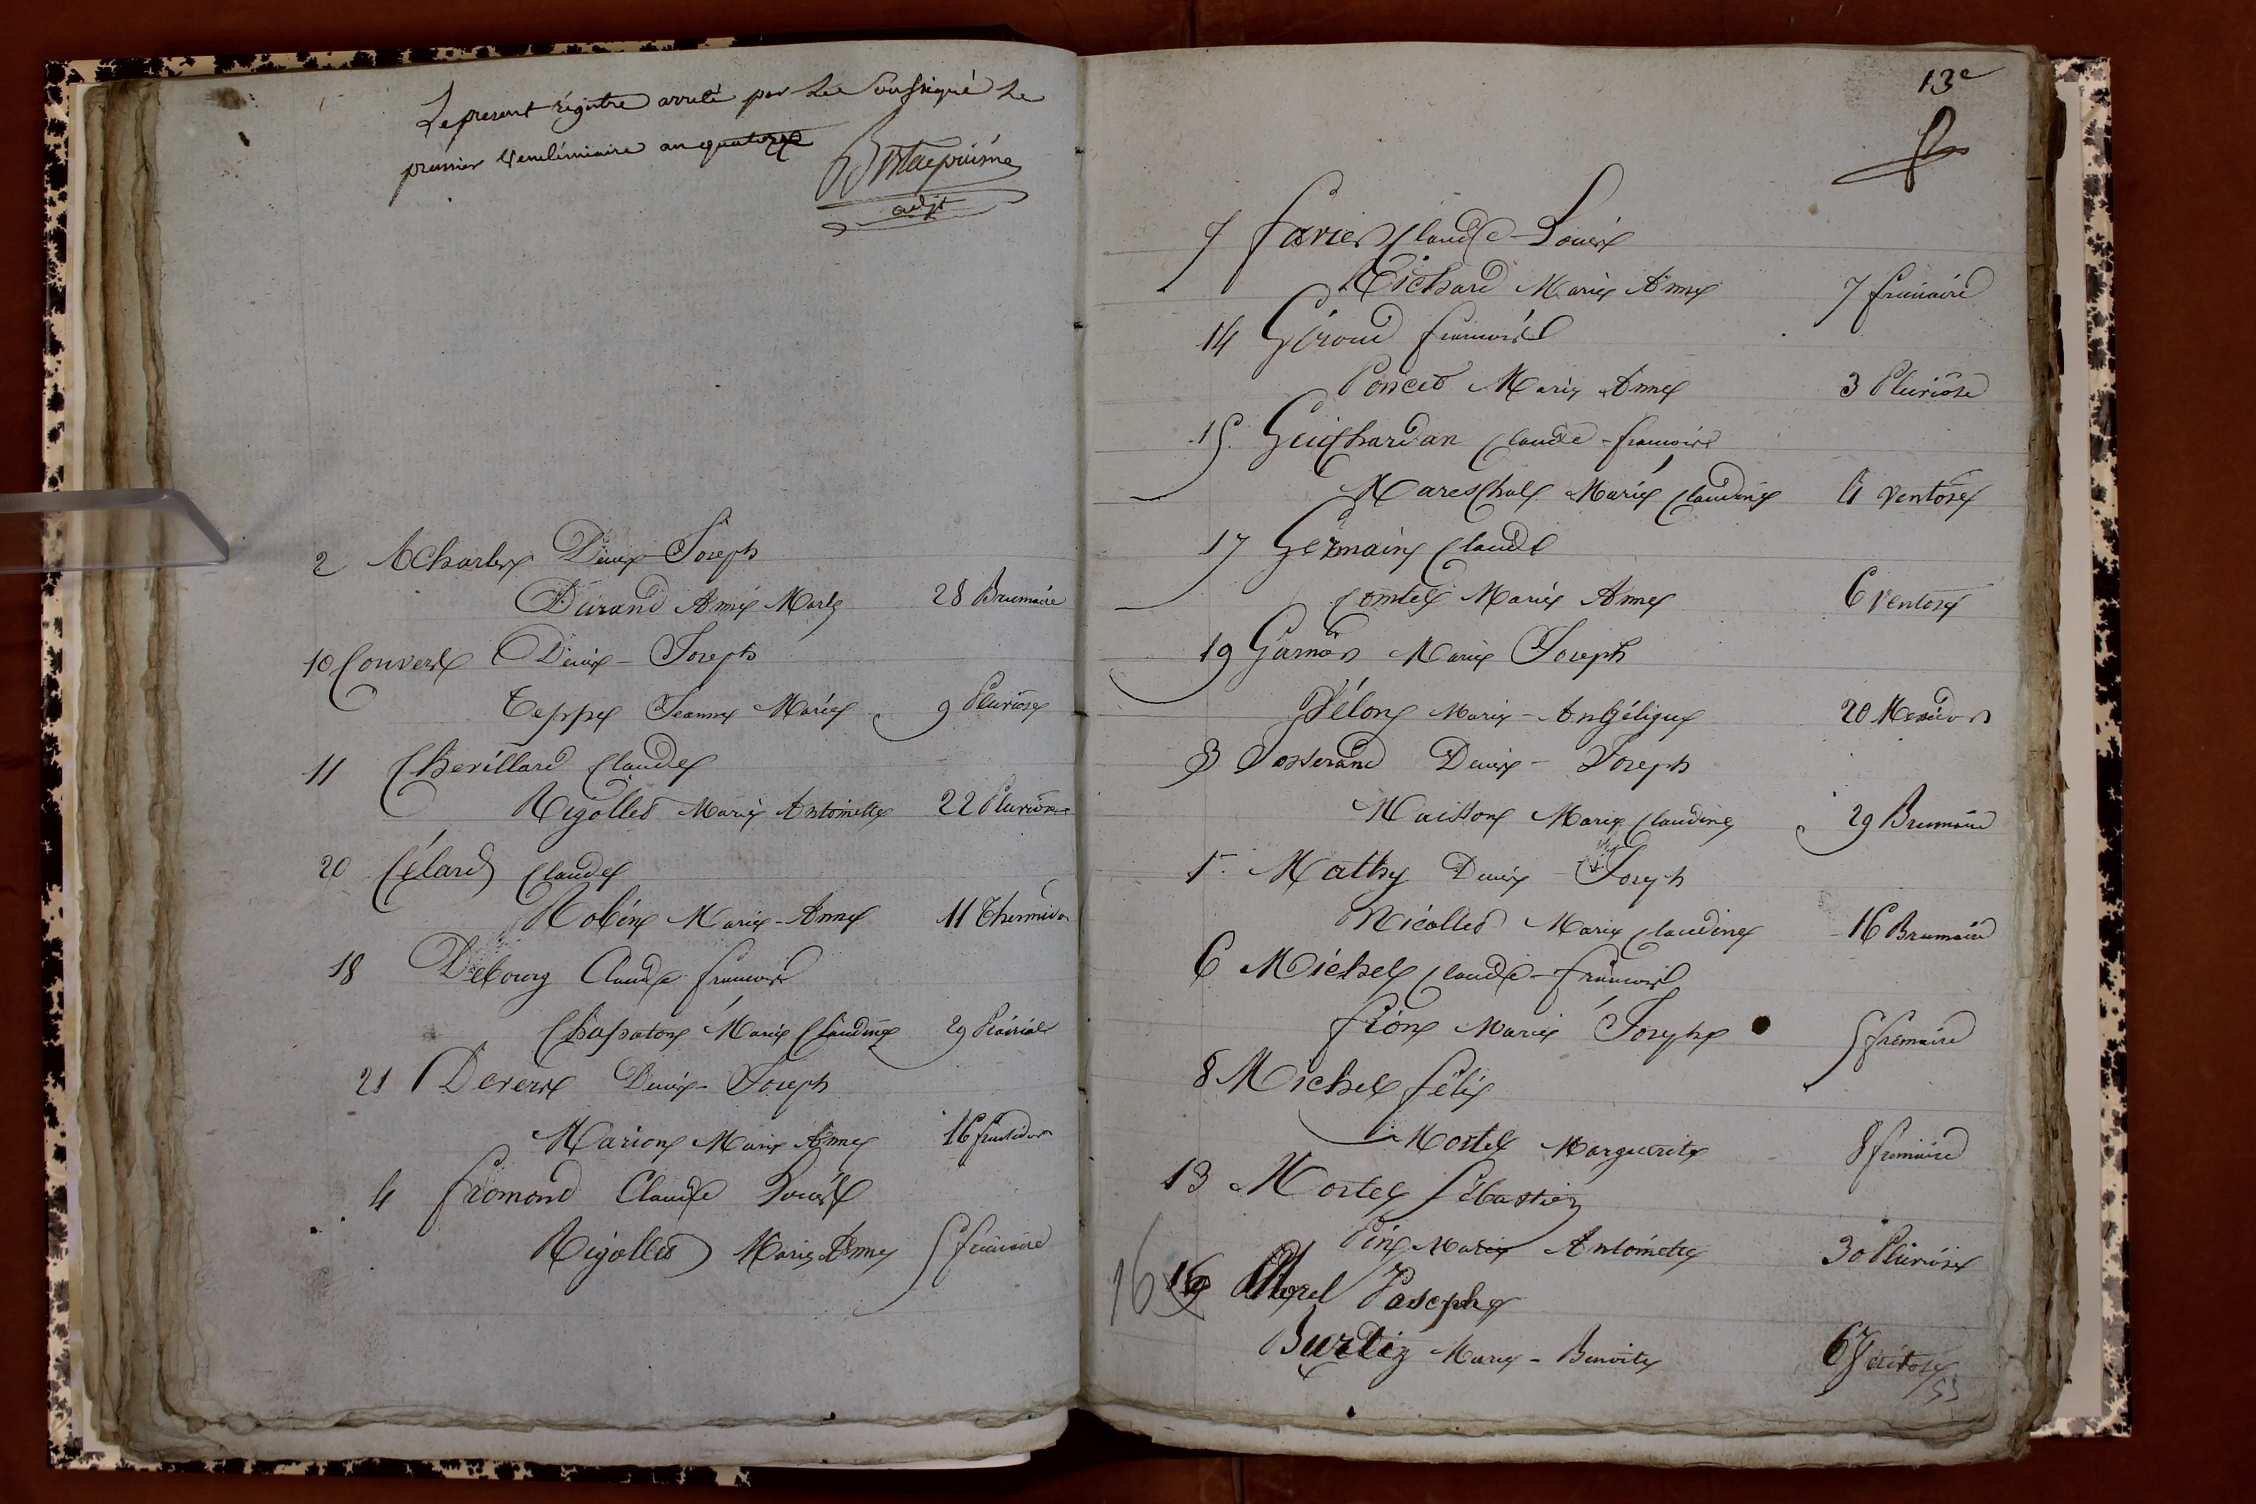 Le present régistre arreté par Le Soussigné Le
premier Vendémiaire an quatorze
adjt
2 Acharles Denis-Joseph
Durand Aimée Marie 28 Brumaire
10 Convers Denis-Joseph
Teppe Jeanne Marie 9 Pluviose
11 Chevillard Claude
Rigollet Marie Antoinette 22 Pluviose
20 Célard Claude
Robin Marie-Anne 11 Thermidor
18 Debourg Claude francois
Chassaton Marie Claudine 29 Prairial
21 Devers Denis-Joseph
Marion Marie Anne 16 fructidor
4 fromond Claude Louis
Rigollet Marie Anne 5 frimaire
13e
7 favier Claude-Louis
Richard Marie Anne 7 frimaire
14 Giroud francois
Poncet Marie Anne 3 Pluviose
15. Guichardan Claude-francois
Mareschal Marie Claudine 4 Ventose
17 Germain Claude
Comte Marie Anne 6 Ventose
19 Marie Joseph
Marie-Angélique 20 Messidor
3 Josserand Denis-Joseph
Maisson Marie Claudine 29 Brumaire
1r Mathy Denis-Joseph
Nicollet Marie Claudine 16 Brumaire
6 Michel Claude-francois
fion Marie Josephe 5 frimaire
8 Michel félix
Mortel Marguerite 8 frimaire
13 Mortel Sébastien
Pin Marie Antoinette 30 Pluviose
16 16 Morel Joseph
Burtin Marie-Benoite 6 Ventose